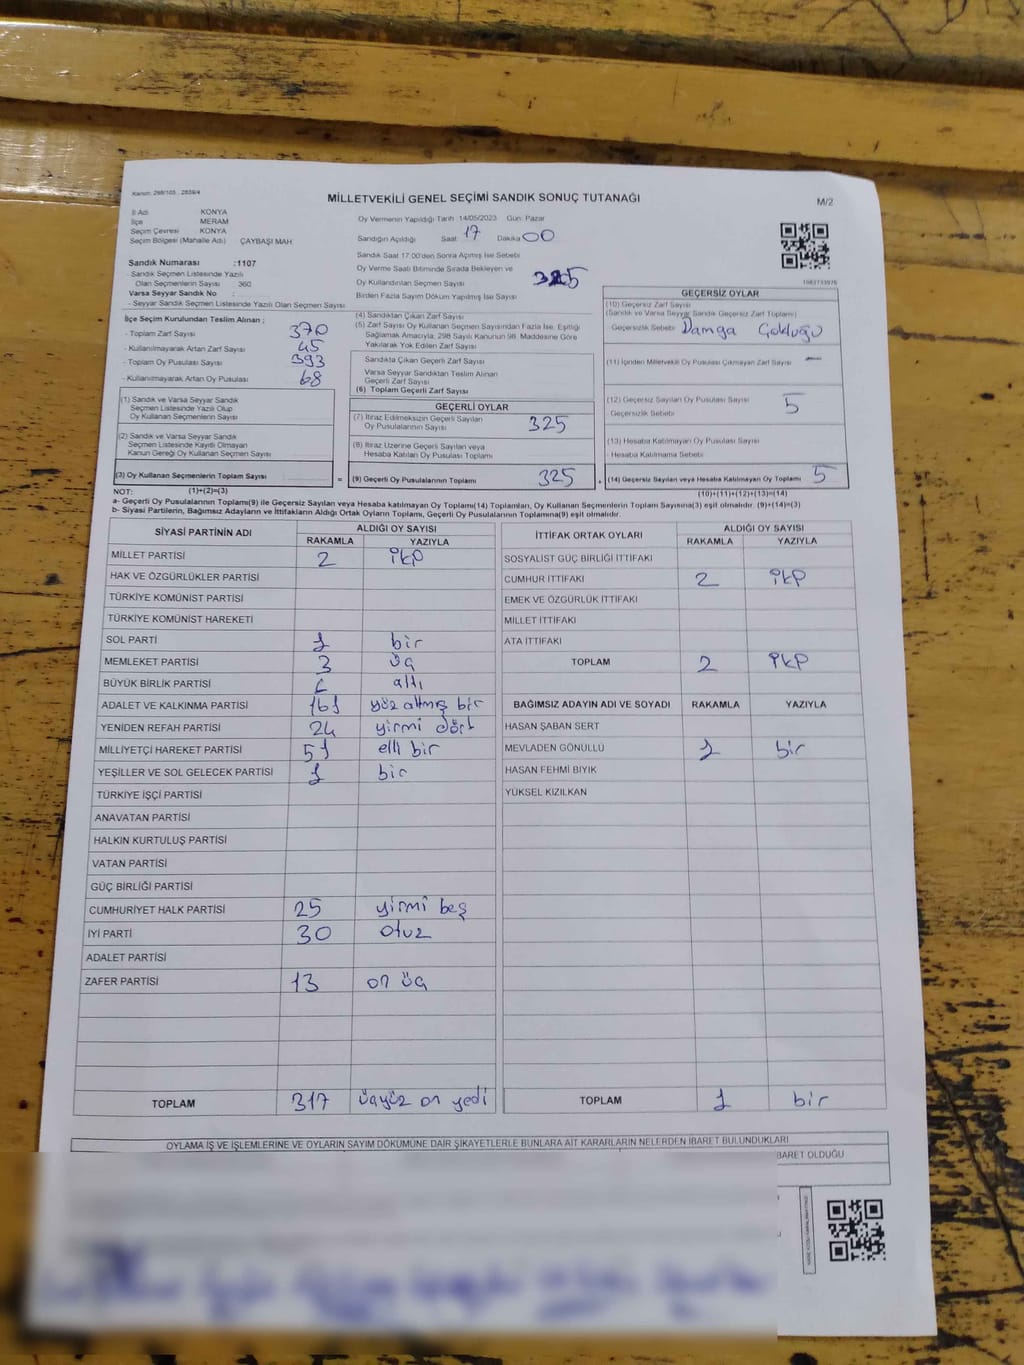 Kanun: 298/105 , 2839/4
MİLLETVEKİLİ GENEL SEÇİMİ SANDIK SONUÇ TUTANAĞI
M/2
İl Adı KONYA
İlçe MERAM
Seçim Çevresi KONYA
Seçim Bölgesi (Mahalle Adı) ÇAYBAŞI MAH.
Oy Vermenin Yapıldığı Tarih 14/05/2023 Gün: Pazar
Sandığın Açıldığı Saat: 17 Dakika: 00
Sandık Saat 17.00'den Sonra Açılmış İse Sebebi
Oy Verme Saati Bitiminde Sırada Bekleyen ve
Oy Kullandırılan Seçmen Sayısı
Birden Fazla Sayım Döküm Yapılmış İse Sayısı
Sandık Numarası :1107
- Sandık Seçmen Listesinde Yazılı
Olan Seçmenlerin Sayısı 360
Varsa Seyyar Sandık No :
- Seyyar Sandık Seçmen Listesinde Yazılı Olan Seçmen Sayısı
İlçe Seçim Kurulundan Teslim Alınan ;
- Toplam Zarf Sayısı 370
- Kullanılmayarak Artan Zarf Sayısı 45
- Toplam Oy Pusulası Sayısı 393
- Kullanılmayarak Artan Oy Pusulası 68
(1) Sandık ve Varsa Seyyar Sandık
Seçmen Listesinde Yazılı Olup
Oy Kullanan Seçmenlerin Sayısı
(2) Sandık ve Varsa Seyyar Sandık
Seçmen Listesinde Kayıtlı Olmayan
Kanun Gereği Oy Kullanan Seçmen Sayısı
(3) Oy Kullanan Seçmenlerin Toplam Sayısı =
(1)+(2)=(3)
(4) Sandıktan Çıkan Zarf Sayısı
(5) Zarf Sayısı Oy Kullanan Seçmen Sayısından Fazla İse, Eşitliği
Sağlamak Amacıyla, 298 Sayılı Kanunun 98. Maddesine Göre
Yakılarak Yok Edilen Zarf Sayısı
Sandıkta Çıkan Geçerli Zarf Sayısı
Varsa Seyyar Sandıktan Teslim Alınan
Geçerli Zarf Sayısı
(6) Toplam Geçerli Zarf Sayısı
GEÇERLİ OYLAR
(7) İtiraz Edilmeksizin Geçerli Sayılan
Oy Pusulalarının Sayısı 325
(8) İtiraz Üzerine Geçerli Sayılan veya
Hesaba Katılan Oy Pusulası Toplamı
(9) Geçerli Oy Pusulalarının Toplamı 325 +
GEÇERSİZ OYLAR
(10) Geçersiz Zarf Sayısı
(Sandık ve Varsa Seyyar Sandık Geçersiz Zarf Toplamı)
Geçersizlik Sebebi Damga
(11) İçinden Milletvekili Oy Pusulası Çıkmayan Zarf Sayısı —
(12) Geçersiz Sayılan Oy Pusulası Sayısı 5
Geçersizlik Sebebi
(13) Hesaba Katılmayan Oy Pusulası Sayısı
- Hesaba Katılmama Sebebi
(14) Geçersiz Sayılan veya Hesaba Katılmayan Oy Toplamı 5
(10)+(11)+(12)+(13)=(14)
NOT:
a- Geçerli Oy Pusulalarının Toplamı(9) ile Geçersiz Sayılan veya Hesaba katılmayan Oy Toplamı(14) Toplamları, Oy Kullanan Seçmenlerin Toplam Sayısına(3) eşit olmalıdır. (9)+(14)=(3)
b- Siyasi Partilerin, Bağımsız Adayların ve İttifakların Aldığı Ortak Oyların Toplamı, Geçerli Oy Pusulalarının Toplamına(9) eşit olmalıdır.
SİYASİ PARTİNİN ADI ALDIĞI OY SAYISI
RAKAMLA YAZIYLA
MİLLET PARTİSİ 2 iki
HAK VE ÖZGÜRLÜKLER PARTİSİ
TÜRKİYE KOMÜNİST PARTİSİ
TÜRKİYE KOMÜNİST HAREKETİ
SOL PARTİ 1 bir
MEMLEKET PARTİSİ 3 üç
BÜYÜK BİRLİK PARTİSİ 6 altı
ADALET VE KALKINMA PARTİSİ 161 yüz altmış bir
YENİDEN REFAH PARTİSİ 24 yirmi dört
MİLLİYETÇİ HAREKET PARTİSİ 51 elli bir
YEŞİLLER VE SOL GELECEK PARTİSİ 1 bir
TÜRKİYE İŞÇİ PARTİSİ
ANAVATAN PARTİSİ
HALKIN KURTULUŞ PARTİSİ
VATAN PARTİSİ
GÜÇ BİRLİĞİ PARTİSİ
CUMHURİYET HALK PARTİSİ 25 yirmi beş
İYİ PARTİ 30 otuz
ADALET PARTİSİ
ZAFER PARTİSİ 13 on üç
TOPLAM 317 üçyüz on yedi
İTTİFAK ORTAK OYLARI ALDIĞI OY SAYISI
RAKAMLA YAZIYLA
SOSYALİST GÜÇ BİRLİĞİ İTTİFAKI
CUMHUR İTTİFAKI 2 iki
EMEK VE ÖZGÜRLÜK İTTİFAKI
MİLLET İTTİFAKI
ATA İTTİFAKI
TOPLAM 2 iki
BAĞIMSIZ ADAYIN ADI VE SOYADI RAKAMLA YAZIYLA
HASAN ŞABAN SERT
MEVLADEN GÖNÜLLÜ 1 bir
HASAN FEHMİ BIYIK
YÜKSEL KIZILKAN
TOPLAM 1 bir
OYLAMA İŞ VE İŞLEMLERİNE VE OYLARIN SAYIM DÖKÜMÜNE DAİR ŞİKAYETLERLE BUNLARA AİT KARARLARIN NELERDEN İBARET BULUNDUKLARI
BARET OLDUĞU